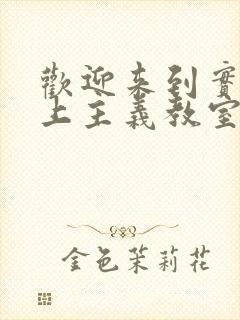 歡迎来到實
上主義教室
金色茉莉花